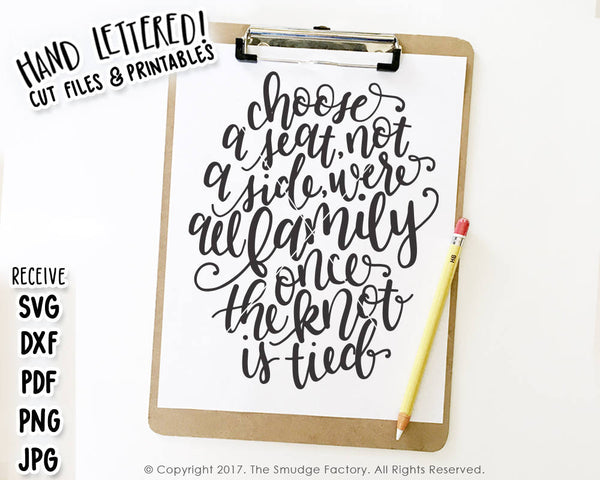 HAND LETTERED!
CUT FILES & PRINTABLES
choose
a seat, not
a side, were
all family
once
the knot
is tied
HB
RECEIVE
SVG
DXF
PDF
PNG
JPG
© Copyright 2017. The Smudge Factory. All Rights Reserved.